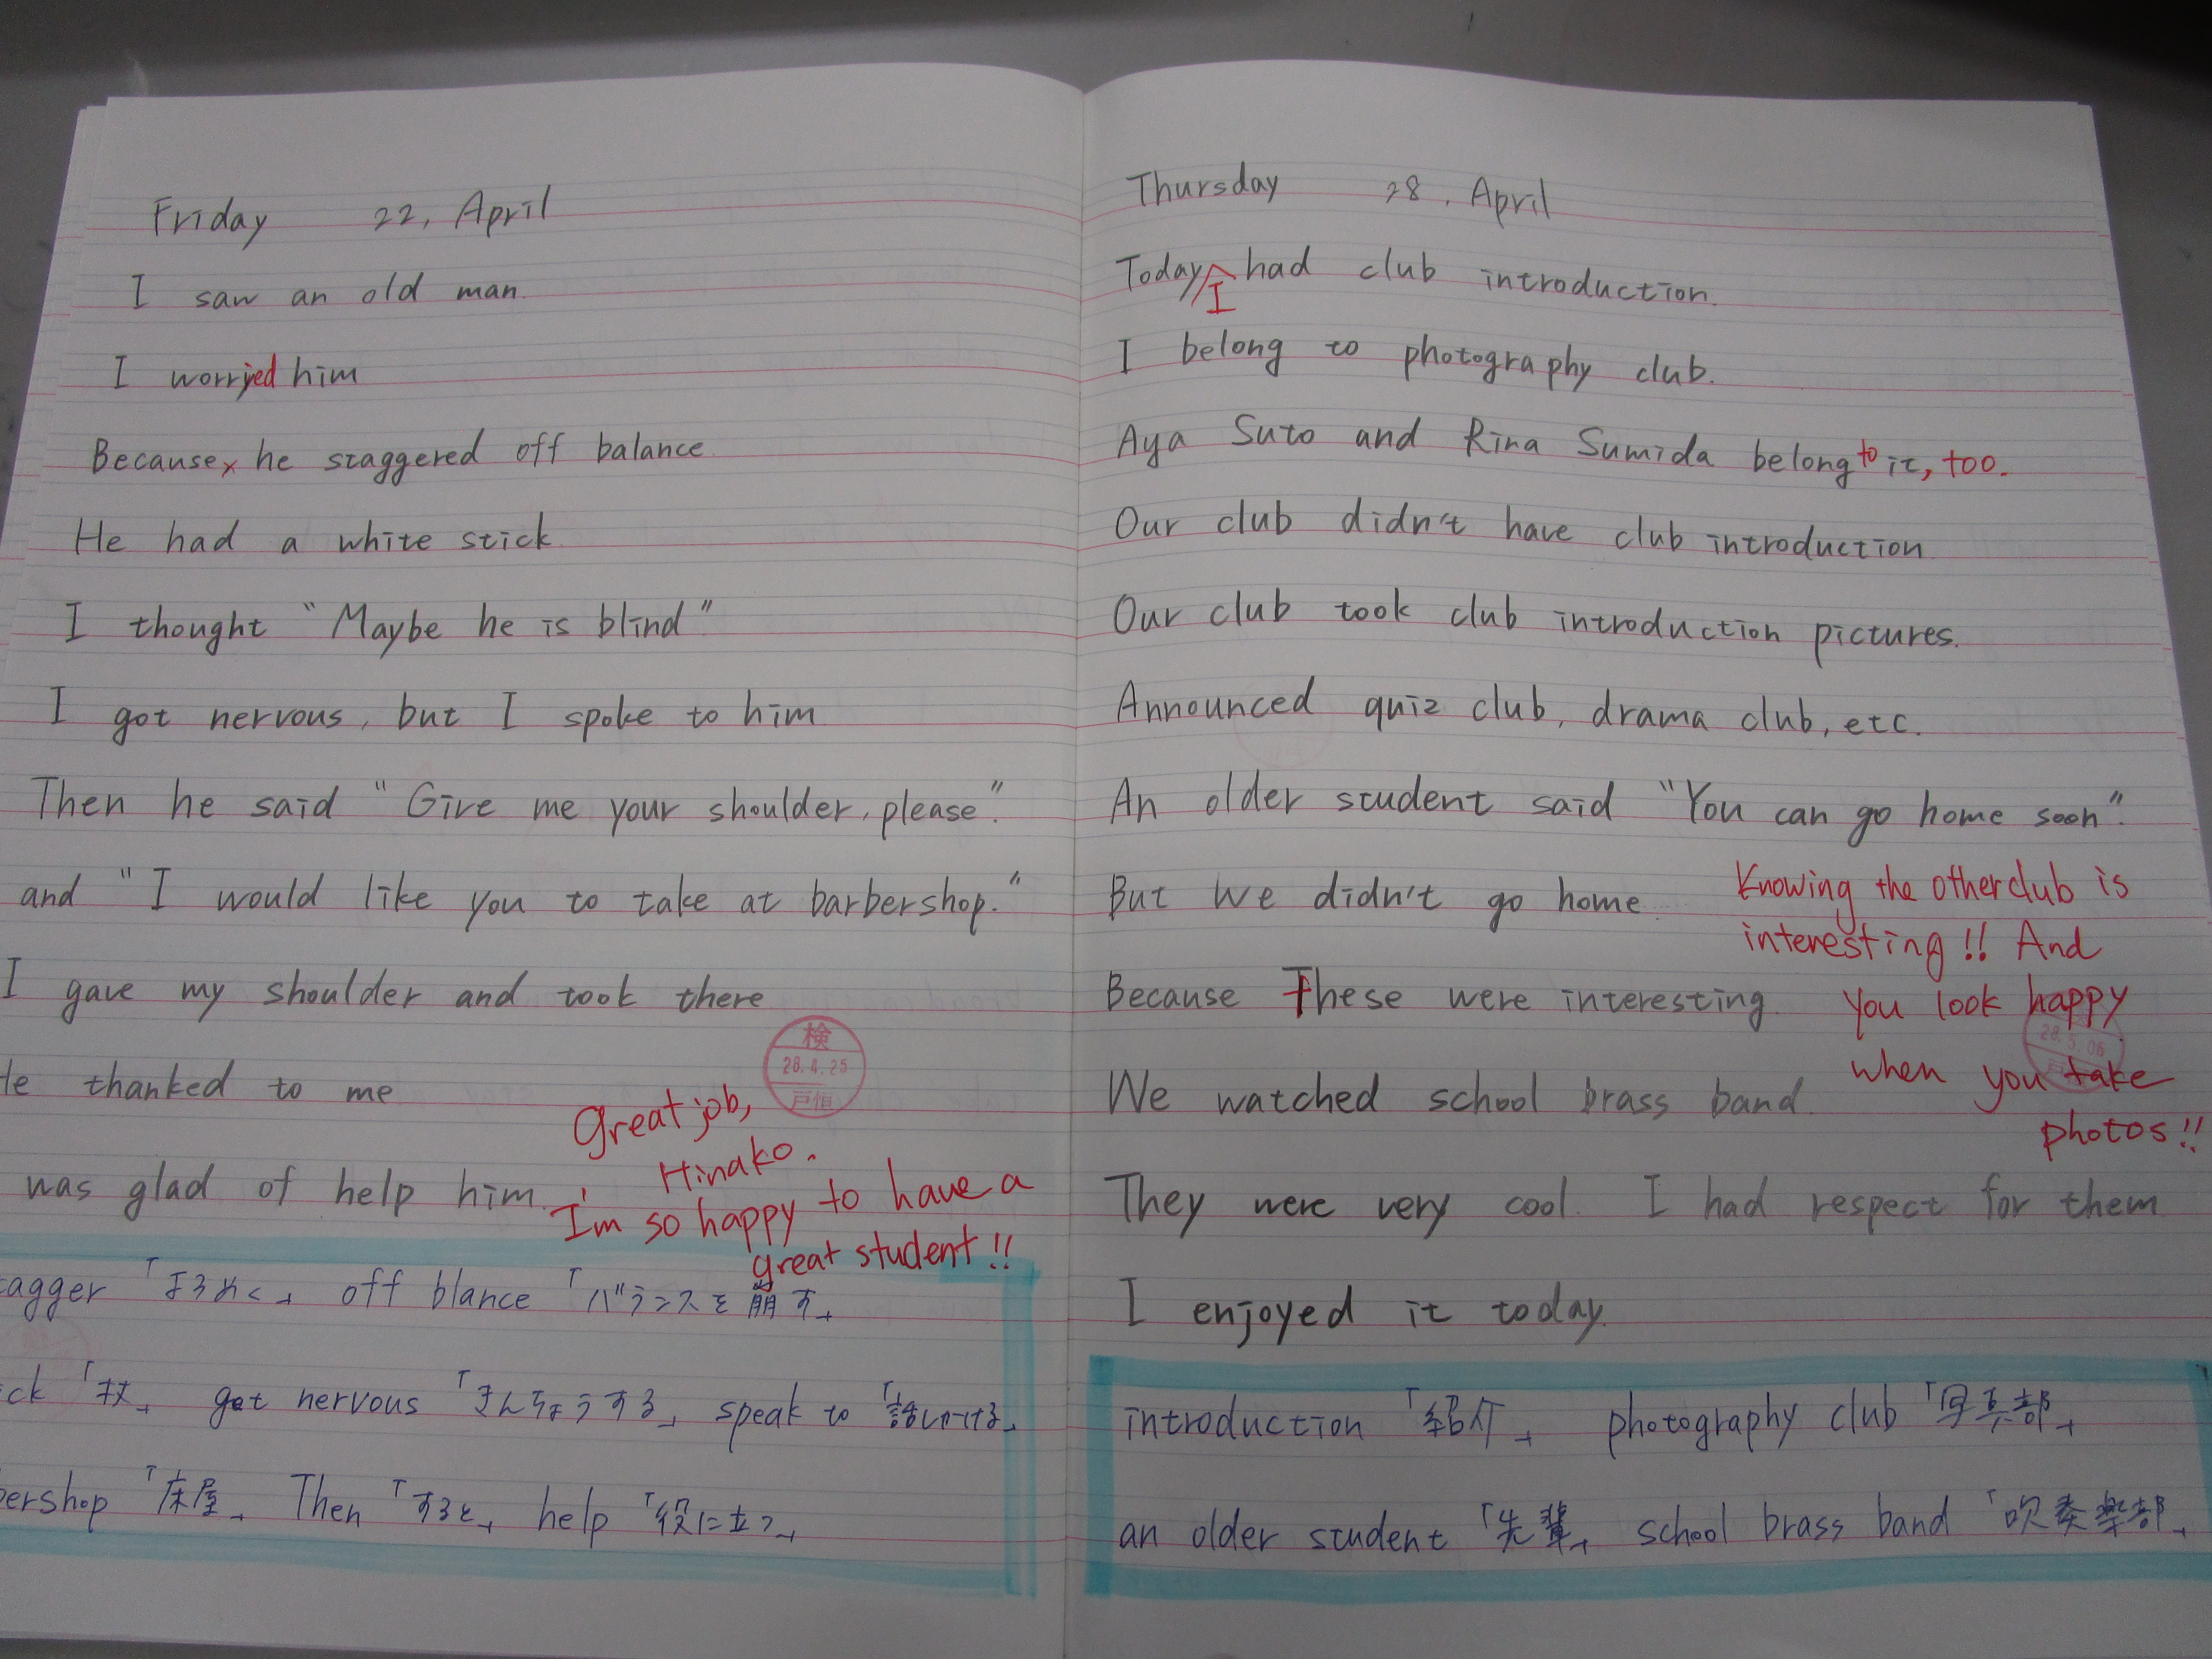 Friday 22, April
I saw an old man.
I worryied him
Because, he staggered off balance
He had a white stick
I thought "Maybe he is blind"
I got nervous, but I spoke to him
Then he said "Give me your shoulder, please".
and "I would like you to take at barbershop."
I gave my shoulder and took there
He thanked to me
was glad of help him.
検
28.4.25
戸恒
Great job,
Hinako.
I'm so happy to have a
great student!!
agger「よろめく」 off blance「バランスを崩す」
ck「杖」 get nervous「きんちょうする」 speak to「話しかける」
bershop「床屋」 Then「すると」 help「役に立つ」
Thursday 28, April
Today I had club introduction.
I belong to photography club.
Aya Suto and Rina Sumida belong to it, too.
Our club didn't have club introduction
Our club took club introduction pictures.
Announced quiz club, drama club, etc.
An older student said "You can go home soon".
But we didn't go home
Because These were interesting
We watched school brass band
They were very cool. I had respect for them
I enjoyed it today.
Knowing the other club is
interesting!! And
you look happy
when you take
photos!!
28.5.06
introduction「紹介」 photography club「写真部」
an older student「先輩」 school brass band「吹奏楽部」